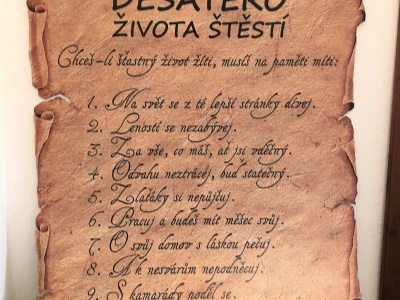 DESATERO
ŽIVOTA ŠTĚSTÍ
Chceš-li šťastný život žíti, musíš na paměti míti:
1. Na svět se z té lepší stránky dívej.
2. Leností se nezabývej.
3. Za vše, co máš, ať jsi vděčný.
4. Odvahu neztrácej, buď statečný.
5. Zlaťáky si nepůjčuj.
6. Pracuj a budeš mít měšec svůj.
7. O svůj domov s láskou pečuj.
8. A k nesvárům nepodněcuj.
9. S kamarády poděl se.